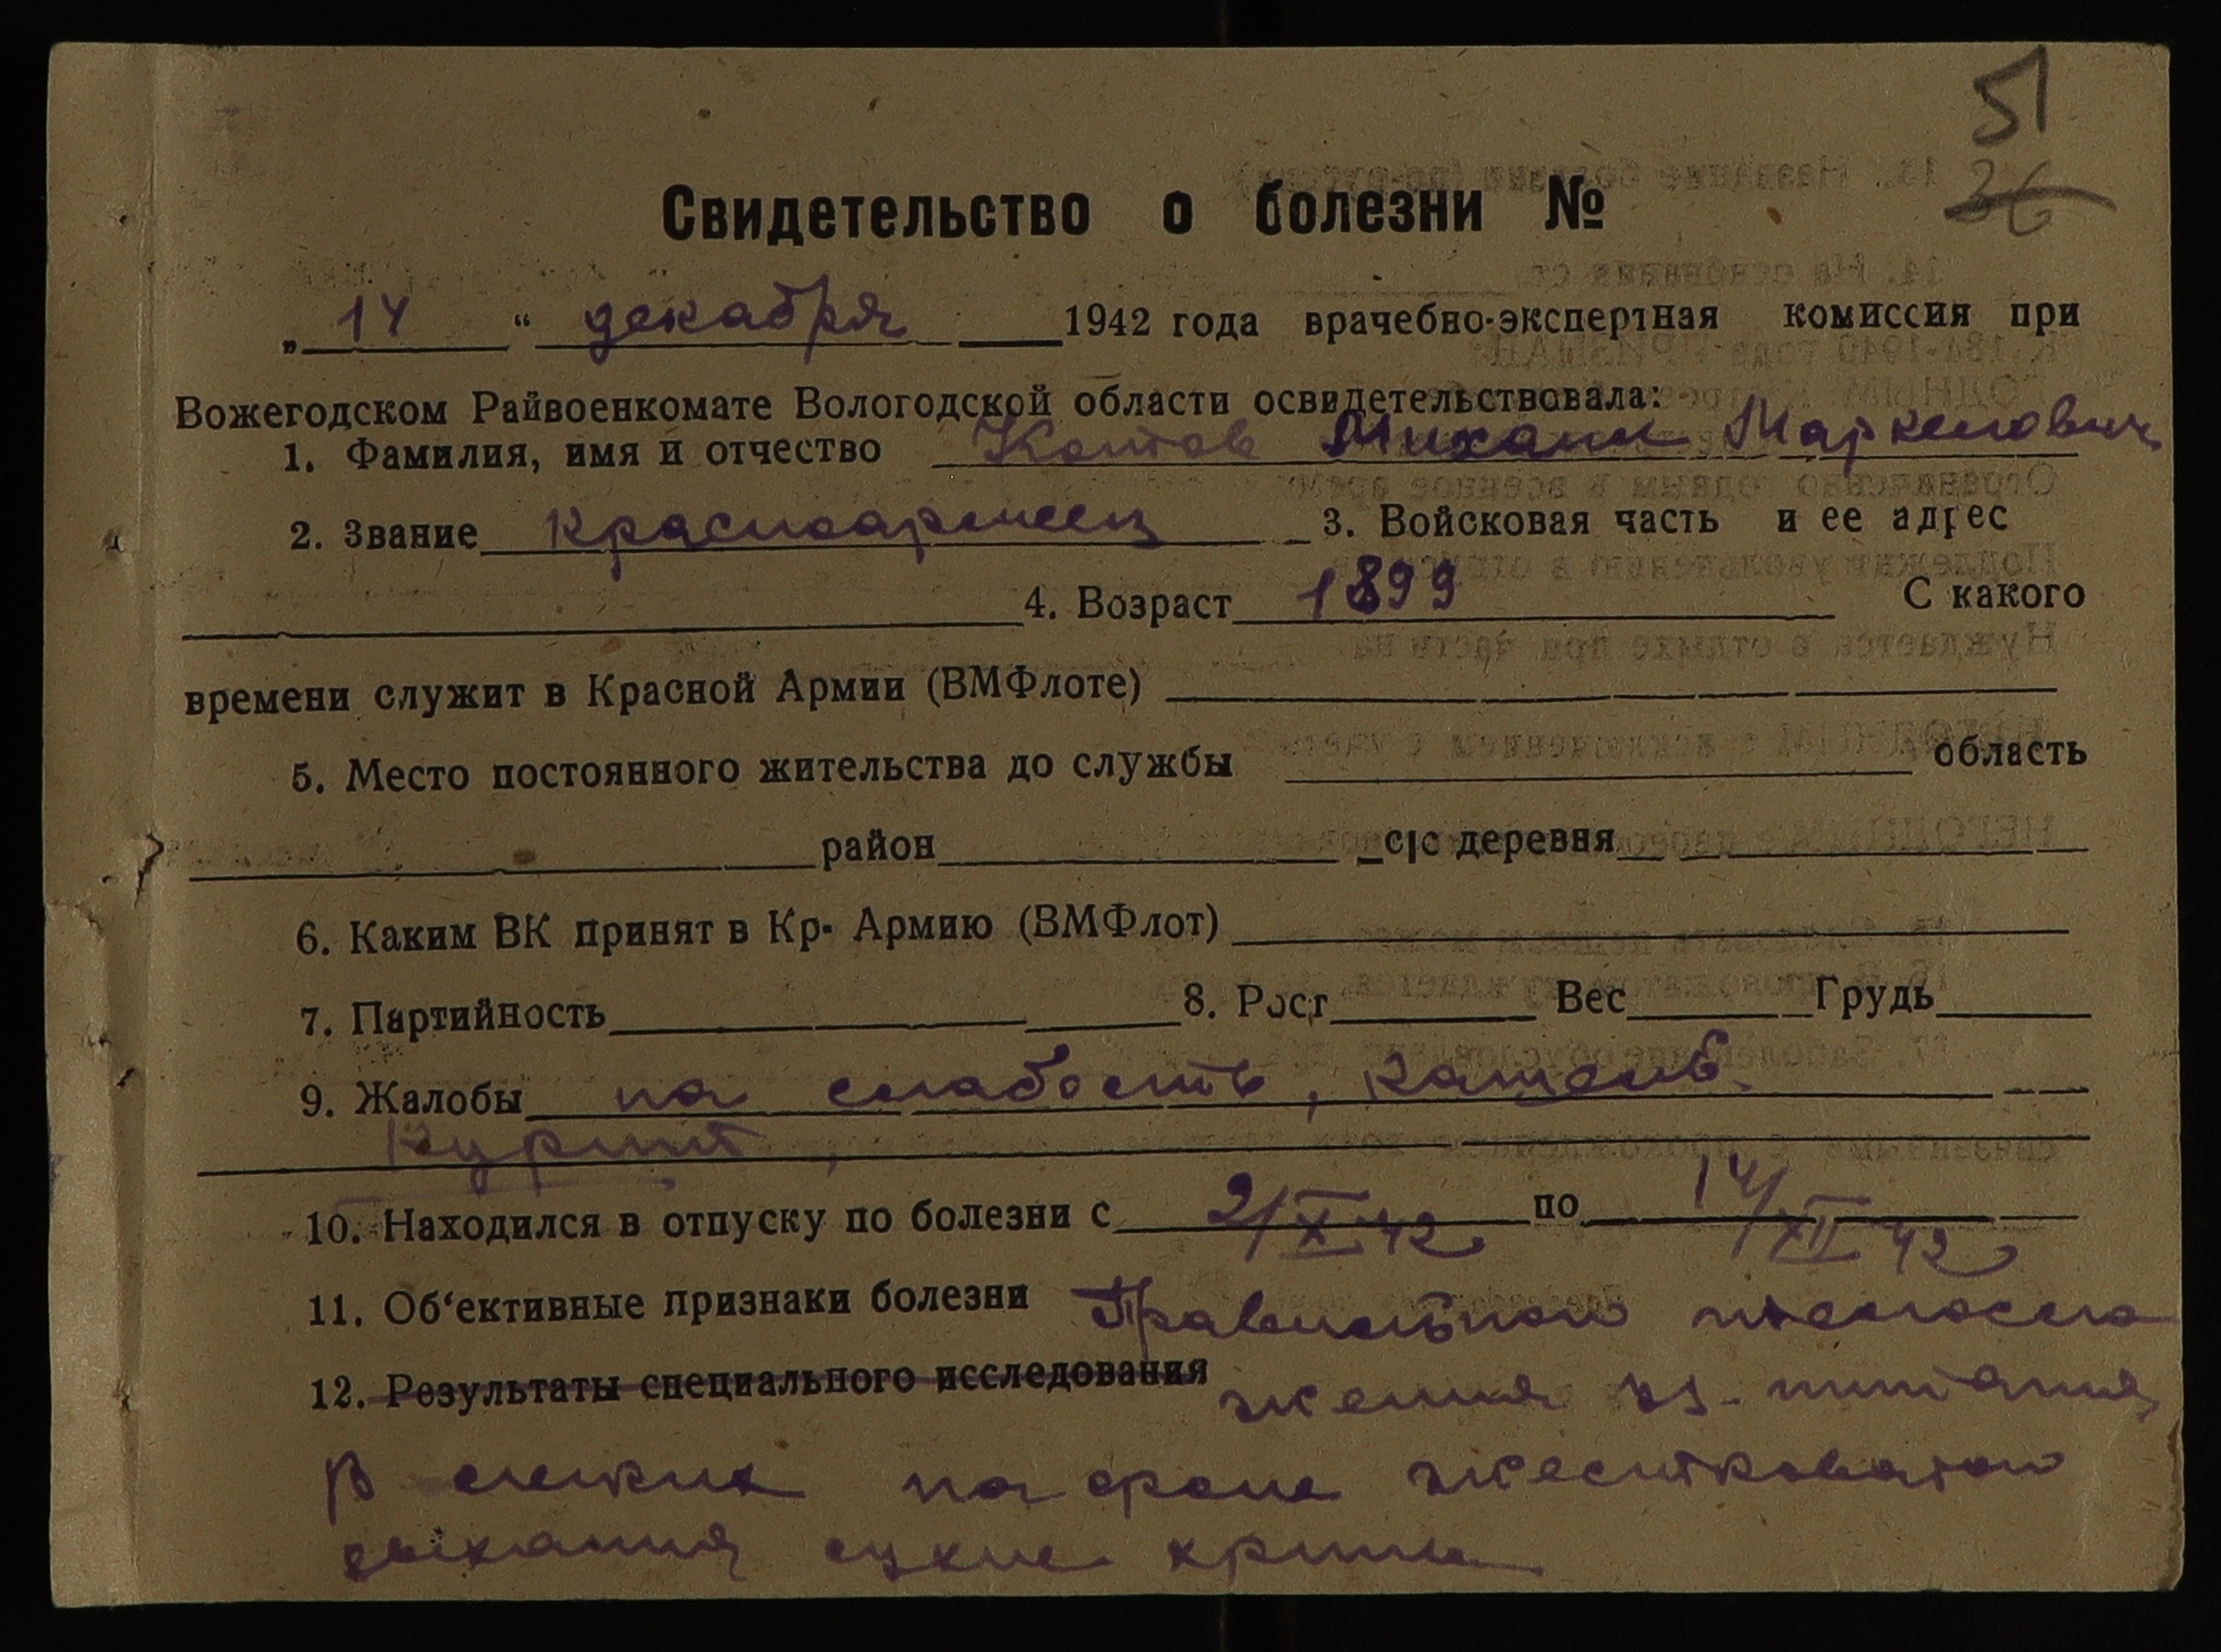 51
36
Свидетельство о болезни №
„ 14 “ декабря 1942 года врачебно-экспертная комиссия при
Вожегодском Райвоенкомате Вологодской области освидетельствовала:
1. Фамилия, имя и отчество Михаил Маркелович
2. Звание красноармеец 3. Войсковая часть и ее адрес
4. Возраст 1899 С какого
времени служит в Красной Армии (ВМФлоте)
5. Место постоянного жительства до службы область
район с|с деревня
6. Каким ВК принят в Кр. Армию (ВМФлот)
7. Партийность 8. Рост Вес Грудь
9. Жалобы на слабость, кашель.
Курит,
10. Находился в отпуску по болезни с 2/X 42 по 14/XII 42
11. Об‘ективные признаки болезни Правильного телосло
12. Результаты специального исследования жения уд. питания
В легких на фоне жестковатого
дыхания сухие хрипы